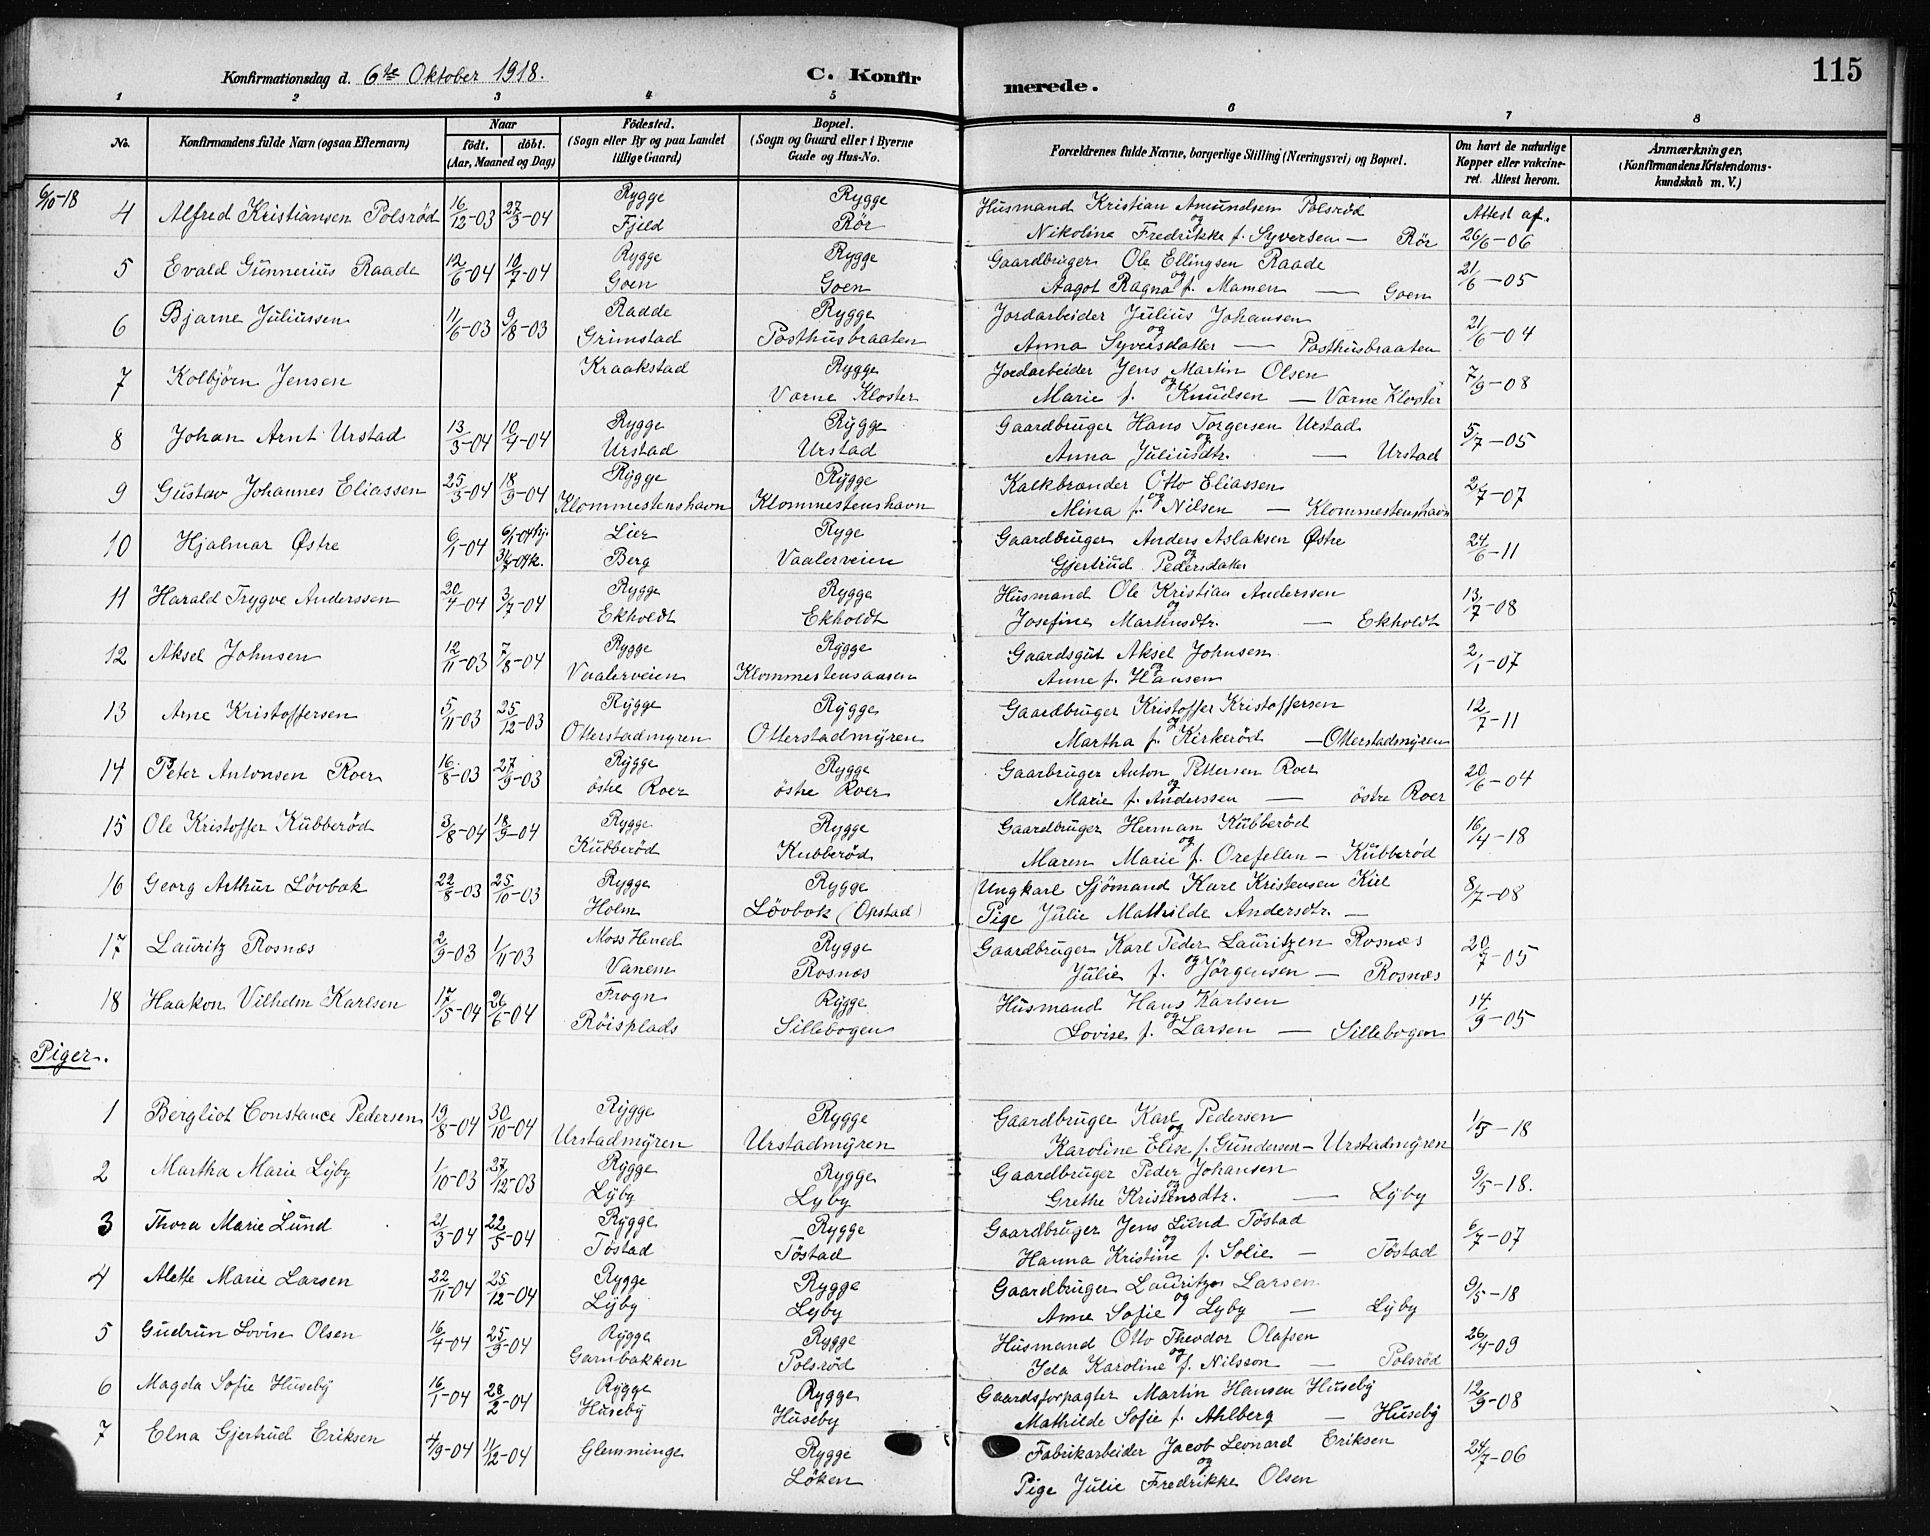 Konfirmationsdag d. 6te Oktober 1918.
C. Konfir
merede.
115
1 2 3 4 5 6 7 8
No.
Konfirmandens fulde Navn (ogsaa Efternavn)
Naar
födt. döbt.
(Aar, Maaned og Dag)
Födested.
(Sogn eller By og paa Landet
tillige Gaard)
Bopæl.
(Sogn og Gaard eller i Byerne
Gade og Hus-No.
Forældrenes fulde Navne, borgerlige Stilling (Næringsvei) og Bopæl.
Om havt de naturlige
Kopper eller vakcine-
ret. Attest herom.
Anmærkninger,
(Konfirmandens Kristendoms-
kundskab m. V.)
6/10-18
4 Alfred Kristiansen Polsröd 16/12-03 27/3-04 Rygge Rygge Husmand Kristian Amundsen Polsröd Attest af.
Fjeld Rör og Nikoline Fredrikke f. Syversen — Rör 26/6-06
5 Evald Gunnerius Raade 12/6-04 10/7-04 Rygge Rygge Gaardbruger Ole Ellingsen Raade 21/6-05
Goen Goen og Aagot Ragna f. Mamen — Goen
6 Bjarne Juliussen 11/6-03 9/8-03 Raade Rygge Jordarbeider Julius Johansen 21/6-04
Grimstad Posthusbraaten og Anna Syversdatter — Posthusbraaten
7 Kolbjörn Jensen Kraakstad Rygge Jordarbeider Jens Martin Olsen 7/9-08
Værne Kloster og Marie f. Knudsen — Værne Kloster
8 Johan Arnt Urstad 13/3-04 10/4-04 Rygge Rygge Gaardbruger Hans Torgersen Urstad 5/7-05
Urstad Urstad og Anna Juliusdtr. — Urstad
9 Gustav Johannes Eliassen 25/3-04 18/9-04 Rygge Rygge Kalkbrænder Otto Eliassen 2/7-07
Klommestenshavn Klommestenshavn og Mina f. Nilsen — Klommestenshavn
10 Hjalmar Østre 6/1-04 6/1-04 hj. Lier Ryge Gaardbruger Anders Aslaksen Østre 24/6-11
31/7-04 k. Berg Vaalerveien og Gjertrud Pedersdatter
11 Harald Trygve Anderssen 20/4-04 3/7-04 Rygge Rygge Husmand Ole Kristian Anderssen 13/7-08
Ekholdt Ekholdt og Josefine Martinsdtr. — Ekholdt
12 Aksel Johnsen 12/11-03 7/8-04 Rygge Rygge Gaardsgut Aksel Johnsen 2/1-07
Vaalerveien Klommestensaasen og Anne f. Hansen
13 Arne Kristoffersen 5/11-03 25/12-03 Rygge Rygge Gaardbruger Kristoffer Kristoffersen 12/7-11
Otterstadmyren Otterstadmyren og Martha f. Kirkeröd — Otterstadmyren
14 Peter Antonsen Roer 16/8-03 27/9-03 Rygge Rygge Gaarbruger Anton Pettersen Roer 20/6-04
östre Roer östre Roer og Marie f. Anderssen — östre Roer
15 Ole Kristoffer Kubberöd 3/8-04 18/9-04 Rygge Rygge Gaardbruger Herman Kubberöd 16/4-18
Kubberöd Kubberöd og Maren Marie f. Orefellen — Kubberöd
16 Georg Arthur Lövbak 22/8-03 25/10-03 Rygge Rygge Ungkarl Sjömand Karl Kristensen Kiel 8/7-08
Holm Lövbak (Opstad) Pige Julie Mathilde Andersdtr. —
17 Lauritz Rosnæs 2/9-03 1/11-03 Moss Hered Rygge Gaardbruger Karl Peder Lauritzen Rosnæs 20/7-05
Vanem Rosnæs og Julie f. Jörgensen — Rosnæs
18 Haakon Vilhelm Karlsen 17/5-04 26/6-04 Frogn Rygge Husmand Hans Karlsen 14/9-05
Röisplads Sillebogen og Lovise f. Larsen — Sillebogen
Piger.
1 Bergliot Constance Pedersen 19/8-04 30/10-04 Rygge Rygge Gaardbruger Karl Pedersen 1/5-18
Urstadmyren Urstadmyren og Karoline Elise f. Gundersen — Urstadmyren
2 Martha Marie Lyby 1/10-03 27/12-03 Rygge Rygge Gaardbruger Peder Johansen 9/5-18.
Lyby Lyby og Grethe Kristensdtr. — Lyby
3 Thora Marie Lund 21/3-04 22/5-04 Rygge Rygge Gaardbruger Jens Lund Töstad 6/7-07
Töstad Töstad og Hanna Kristine f. Solie — Töstad
4 Alette Marie Larsen 22/11-04 25/12-04 Rygge Rygge Gaardbruger Lauritz Larsen 9/5-18
Lyby Lyby og Anne Sofie Lyby — Lyby
5 Gudrun Lovise Olsen 16/4-04 25/9-04 Rygge Rygge Husmand Otto Theodor Olafsen 26/4-09
Garnbakken Polsröd og Karoline f. Nilsson — Polsröd
6 Magda Sofie Huseby 16/1-04 28/2-04 Rygge Rygge Gaardsforpagter Martin Hansen Huseby 12/9-08
Huseby Huseby Mathilde Sofie f. Ahlberg — Huseby
7 Elna Gjertrud Eriksen 4/9-04 11/12-04 Glemminge Rygge Fabrikarbeider Jacob Leonard Eriksen 24/7-06
Löken og Pige Julie Fredrikke Olsen